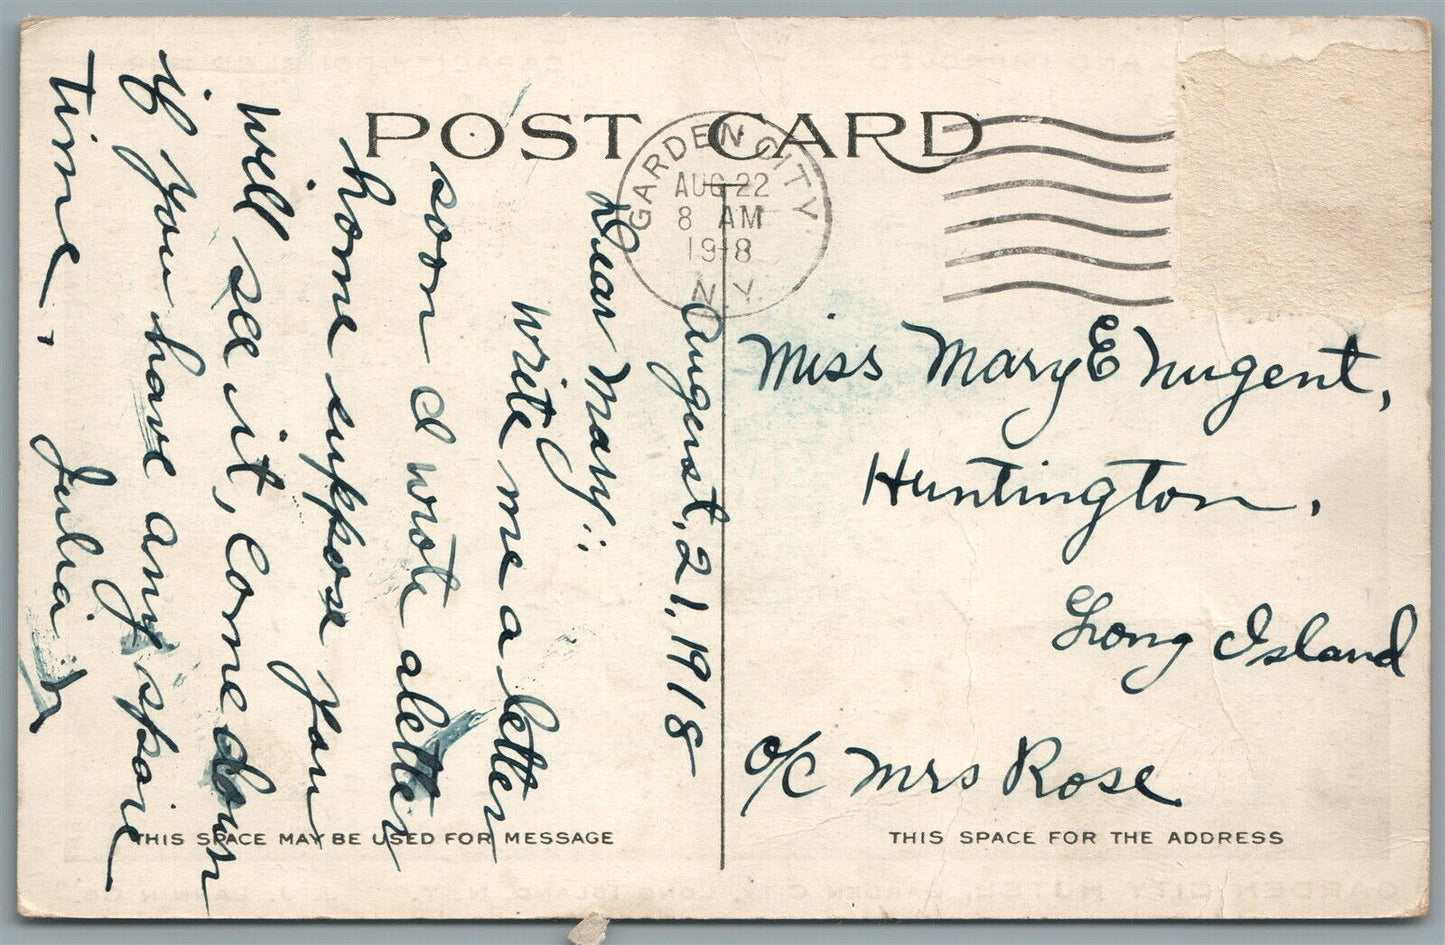 POST CARD
GARDEN CITY,
AUG 22
8 AM
1918
N.Y.
August, 21, 1918
Dear Mary:.
Write me a letter
soon I wrote a letter
home suppose you
will see it, Come down
if you have any spare
time.
Julia
THIS SPACE MAY BE USED FOR MESSAGE
Miss Mary E Nugent,
Huntington,
Long Island
o/c Mrs Rose
THIS SPACE FOR THE ADDRESS